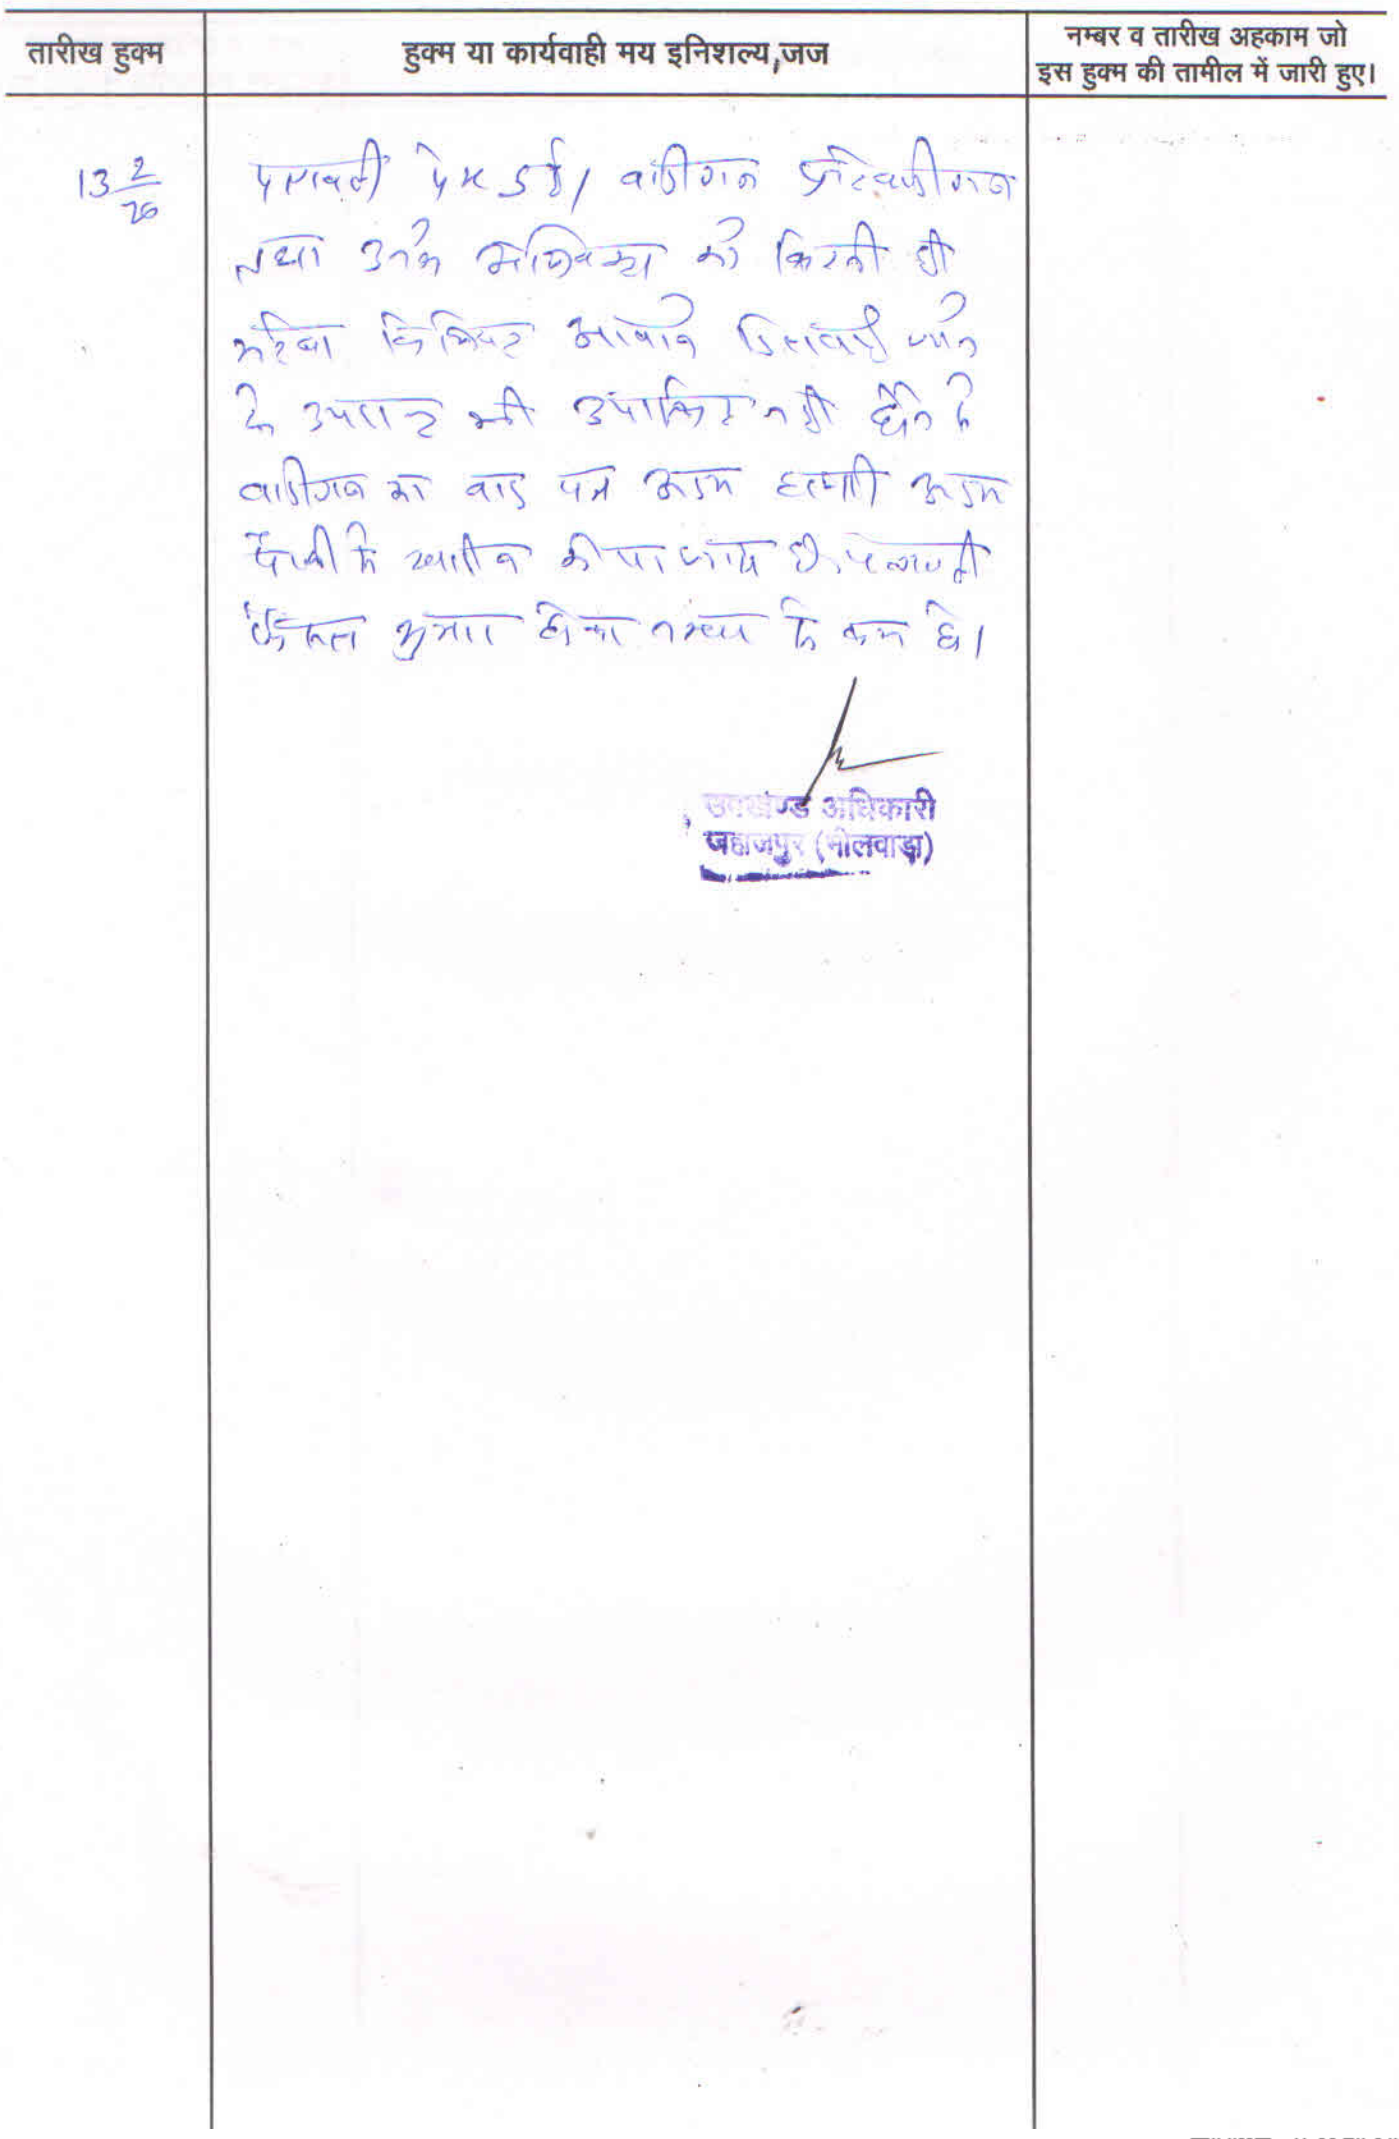 तारीख हुक्म
हुक्म या कार्यवाही मय इनिशल्य जज
नम्बर व तारीख अहकाम जो
इस हुक्म की तामील में जारी हुए।
13 2/26
पत्रावली पेश हुई। वादीगण प्रतिवादीगण
तथा उनके अधिवक्ता की
आवाज दिलवाई जाने
के उपरान्त भी उपस्थित नहीं होने से
वादीगण का वाद पत्र अदम हाजरी अदम
पैरवी में खारीज किया जाता है। पत्रावली
फैसल शुमार होकर नम्बर से कम हो।
उपखण्ड अधिकारी
जहाजपुर (भीलवाड़ा)